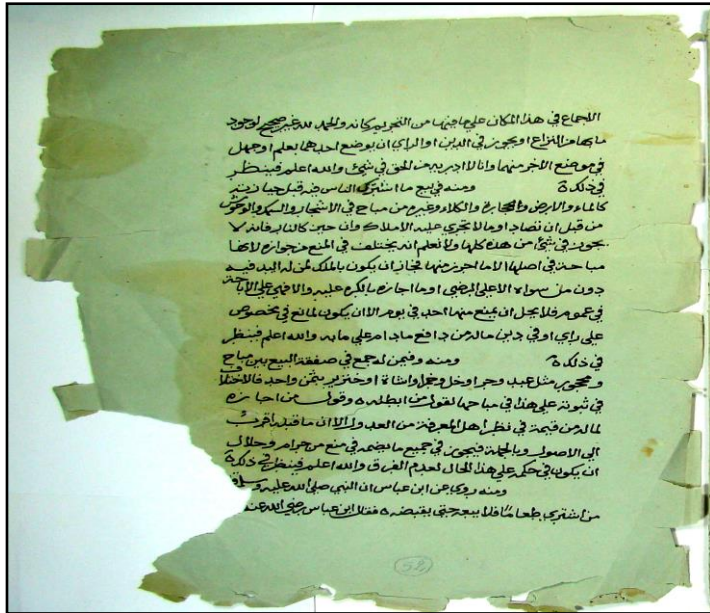 الاجماع في هذا المكان على ما فيهما من التحريم كانه والحمد لله غير صحيح لوجود
ما بهما من النزاع او يجوز في الدين او الراي ان يوضع احدهما بعلم او جهل
في موضع الاخر منهما وانا لا ادريه من الحق في شئ والله اعلم فينظر
في ذلك ه ومنه في بيع ما اشترك الناس فيه قبل حيازته
كالماء والارض والحجارة والكلاء وغيره من مباح في الاشجار والسمك والوحوش
من قبل ان تصاد او ما لا تجري عليه الاملاك وان حين كالنار فانه لا
يجوز في شئ من هذه كلها ولا نعلم انه يختلف في المنع من جوازه لانها
مباحة في اصلها الا ما احرز منها فجاز ان يكون بالملك لمن له اليد فيه
دون من سواه الا على الرضى او ما اجازه بالكره عليه والا فهي على الاباحة
في عمومه فلا يحل ان يمنع منها احد في يوم الا ان يكون لمانع في بخصوص
على راي او في دين ماله من دافع مادام على ما به والله اعلم فينظر
في ذلك ه ومنه وفيمن له جمع في صفقة البيع بين مباح
ومحجور مثل عبد وحر او خل وخمر او شاة او خنزير بثمن واحد فالاختلاف
في ثبوته على هذا في مباحها لقول من ابطله ه وقول من اجازه
لماله من قيمة في نظر اهل المعرفة من العدول الا ان ما قبله اقرب
الى الاصول وبالجملة فيجوز في جميع ما يضمه في منع من حرام وحلال
ان يكون في حكمه على هذا الحال لعدم الفرق والله اعلم فينظر في ذلك ه
ومنه روي عن ابن عباس ان النبي صلى الله عليه وسلم
من اشترى طعاما فلا يبعه حتى يقبضه ه فقال ابن عباس رضي الله عنه